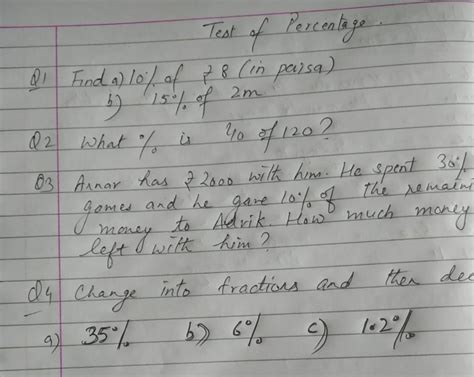 Test of Percentage.
Q1 Find a) 10% of ₹8 (in paisa)
b) 15% of 2m
Q2 What % is 40 of 120?
Q3 Arnav has ₹2000 with him. He spent 30%
games and he gave 10% of the remain
money to Advik How much money
left with him?
Q4 Change into fractions and then dec
a) 35% b) 6% c) 1.2%